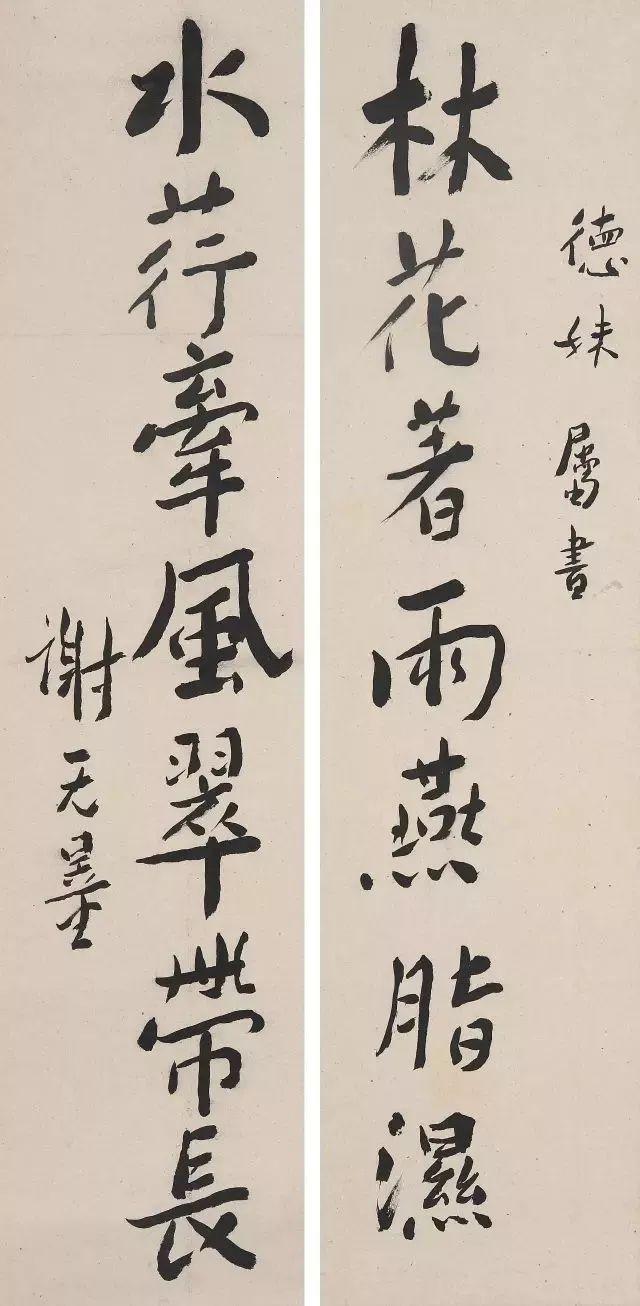 德妹属書
林花著雨燕脂濕
水荇牽風翠帶長
謝无量